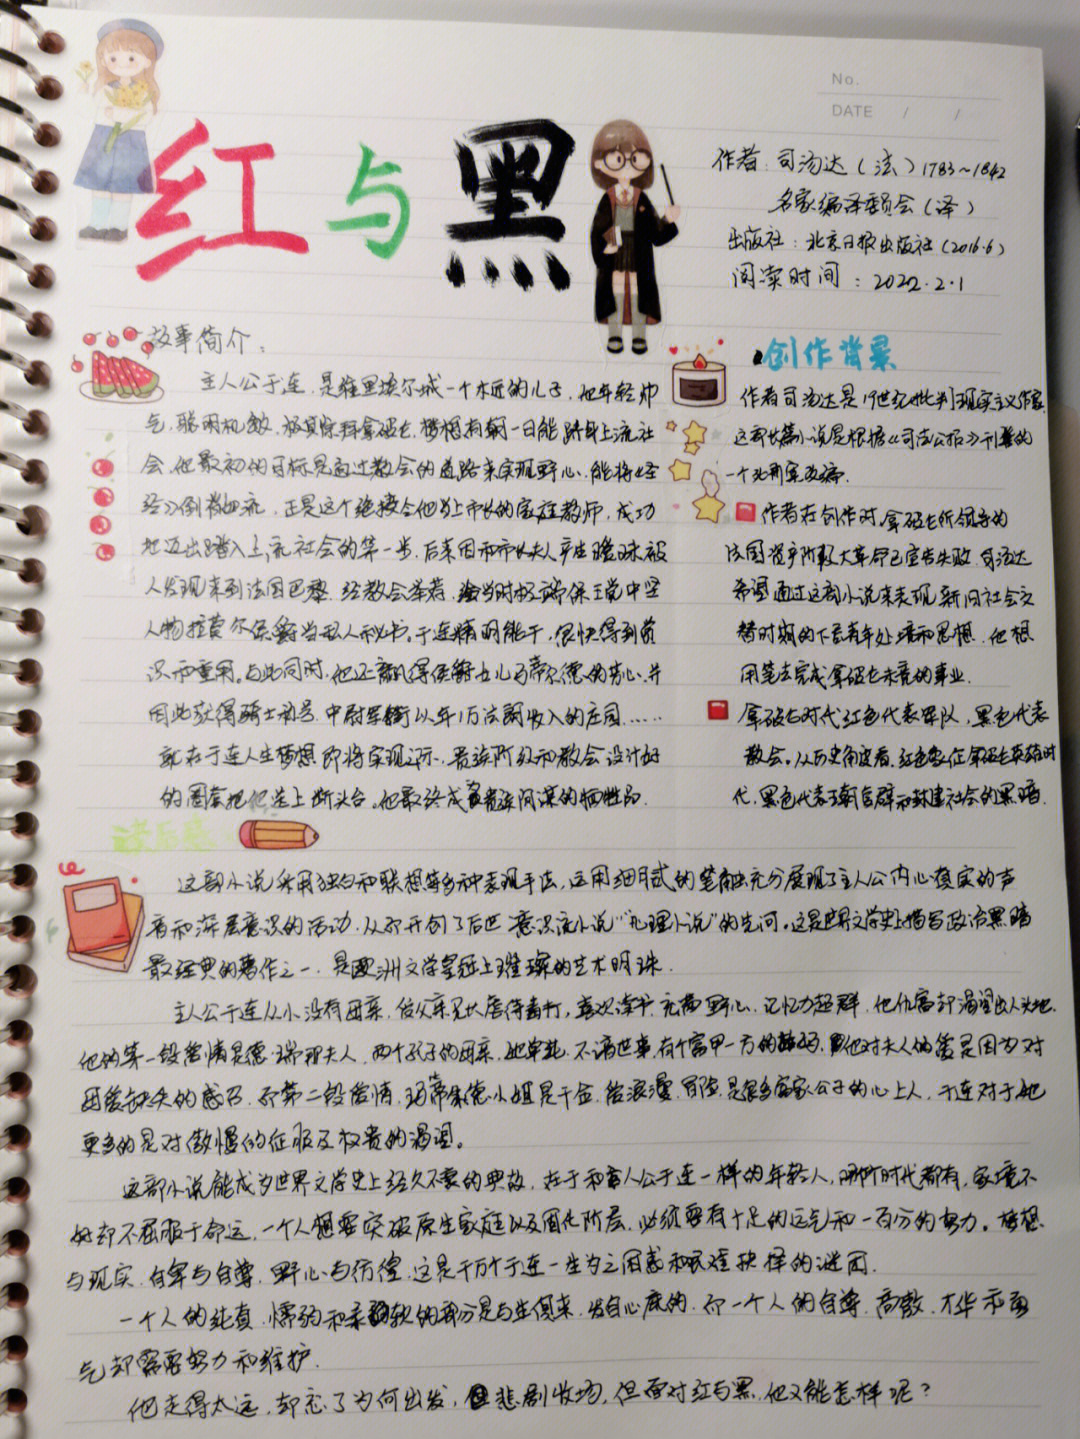 No.
DATE / /
红与黑
作者：司汤达（法）1783~1842
名家编译委员会（译）
出版社：北京日报出版社（2016.6）
阅读时间：2022.2.1
故事简介：
主人公于连，是维里埃尔城一个木匠的儿子，他年轻帅
气，聪明机敏，极其崇拜拿破仑，梦想有朝一日能跻身上流社
会，他最初的目标是通过教会的道路来实现野心，能将《圣
经》倒背如流，正是这个绝技令他当上市长的家庭教师，成功
地迈出踏入上流社会的第一步，后来因和市长夫人产生暧昧被
人发现来到法国巴黎，经教会举荐，给当时极端保王党中坚
人物拉莫尔侯爵当私人秘书，于连精明能干，很快得到赏
识和重用。与此同时，他还赢得侯爵女儿玛蒂尔德的芳心，并
因此获得骑士称号，中尉军衔以年1万法郎收入的庄园……
就在于连人生梦想即将实现之际，贵族阶级和教会设计好
的圈套把他送上断头台。他最终成为贵族阴谋的牺牲品.
创作背景
作者司汤达是19世纪批判现实主义作家,
这部长篇小说是根据《司法公报》刊登的
一个死刑案改编.
作者在创作时,拿破仑所领导的
法国资产阶级大革命已宣告失败,司汤达
希望通过这部小说来表现新旧社会交
替时期的下层青年处境和思想,他想
用笔去完成拿破仑未竟的事业.
拿破仑时代红色代表军队，黑色代表
教会。从历史角度看,红色象征拿破仑英雄时
代,黑色代表王朝官群和封建社会的黑暗.
读后感
这部小说采用独白和联想等多种表现手法，运用细腻式的笔触充分展现了主人公内心真实的声
音和深层意识的活动，从而开创了后世"意识流小说""心理小说"的先河。这是世界文学史上描写政治黑暗
最经典的著作之一，是欧洲文学皇冠上璀璨的艺术明珠.
主人公于连从小没有母亲，给父亲兄长虐待毒打，喜欢读书，充满野心，记忆力超群，他仇富却渴望出人头地.
他的第一段爱情是德·瑞那夫人，两个孩子的母亲，她单纯，不谙世事，有个富甲一方的，他对夫人的爱是因为对
母爱缺失的感召，而第二段爱情，玛蒂尔德小姐是千金，爱浪漫，冒险，是很多富家公子的心上人，于连对于她
更多的是对傲慢的征服及权贵的渴望。
这部小说能成为世界文学史上经久不衰的典故，在于和主人公于连一样的年轻人，哪个时代都有，家境不
好却不屈服于命运，一个人想要突破原生家庭以及固化阶层，必须要有十足的运气和一百分的努力。梦想
与现实,自卑与自尊,野心与彷徨,这是千万个于连一生为之困惑和艰难抉择的谜团.
一个人的纯真,懦弱和柔软的部分是与生俱来,发自心底的,而一个人的自尊,高傲,才华和勇
气却需要努力和维护.
他走得太远，却忘了为何出发，悲剧收场，但面对红与黑,他又能怎样呢？